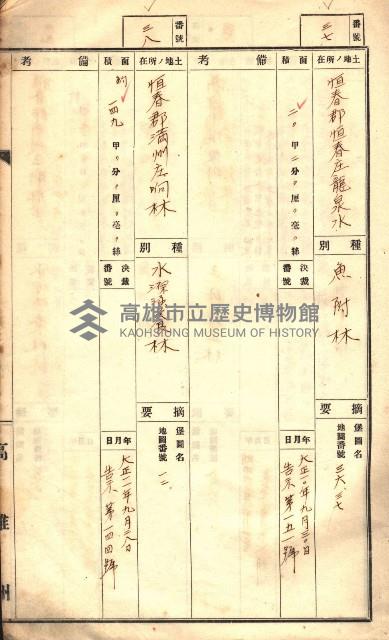 番號
三七
土地ノ所在
恒春郡恒春庄龍泉水
種別
魚附林
摘要
堡圖名
地圖番號
三六、三七
面積
二〇甲二分〃厘〃毫〃絲
決裁番號
年月日
大正一〇年九月三〇日
告示第一五一號
備考
番號
三八
土地ノ所在
恒春郡滿州庄响林
種別
水源涵養林
摘要
堡圖名
地圖番號
一二
面積
約
一四九甲〃分〃厘〃毫〃絲
決裁番號
年月日
大正一一年九月二八日
告示第一四四號
備考
高雄州
高雄市立歷史博物館
KAOHSIUNG MUSEUM OF HISTORY